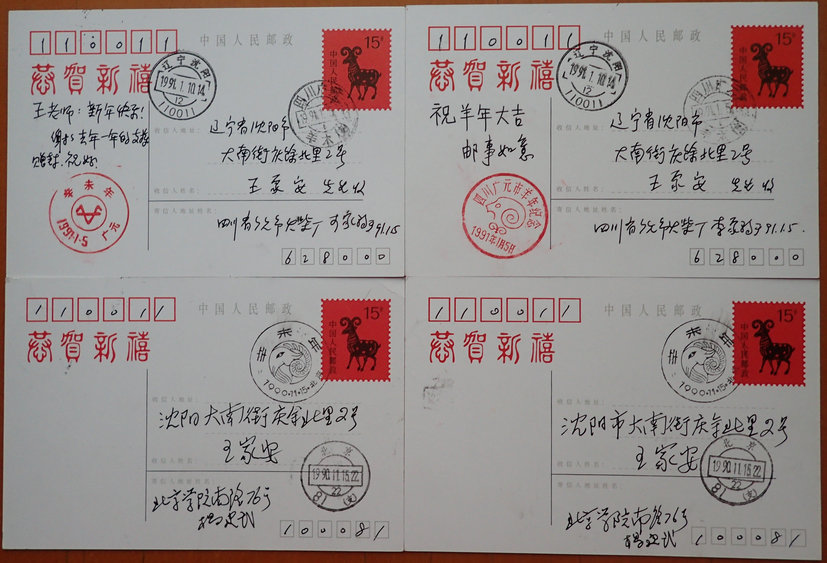 110011
中国人民邮政
15分
中国人民邮政
恭贺新禧
辽宁沈阳
1991.1.10.14
12
110011
四川广元
王老师：新年快乐！
谢谢去年一年的支持
祝好
辽宁省沈阳市
收信人地址：
大南街庆余北里2号
收信人姓名：
王家安 先生收
寄信人地址姓名：
癸未年
1991·1·5
广元
四川省广元市
91.1.5
628000
110011
中国人民邮政
15分
中国人民邮政
恭贺新禧
辽宁沈阳
1991.1.10.14
12
110011
四川广元
祝羊年大吉
邮事如意
辽宁省沈阳市
收信人地址：
大南街庆余北里2号
收信人姓名：
王家安 先生收
寄信人地址姓名：
四川广元市羊年纪念
1991年1月5日
四川省广元市
91.1.5.
628000
110011
中国人民邮政
15分
中国人民邮政
恭贺新禧
辛未年
1990·11·15·北京
收信人地址：
沈阳大南街庆余北里2号
收信人姓名：
王家安
北京
1990.11.15.22
22
81(支)
寄信人地址姓名：
北京学院南路76号
100081
110011
中国人民邮政
15分
中国人民邮政
恭贺新禧
辛未年
1990·11·15·北京
收信人地址：
沈阳市大南街庆余北里2号
收信人姓名：
王家安
北京
1990.11.15.22
22
81(支)
寄信人地址姓名：
北京学院南路76号
100081